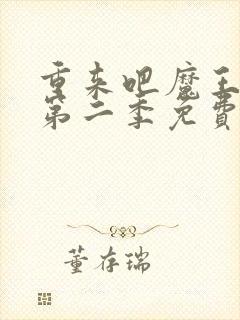 重来吧魔王
第二季免费
董存瑞